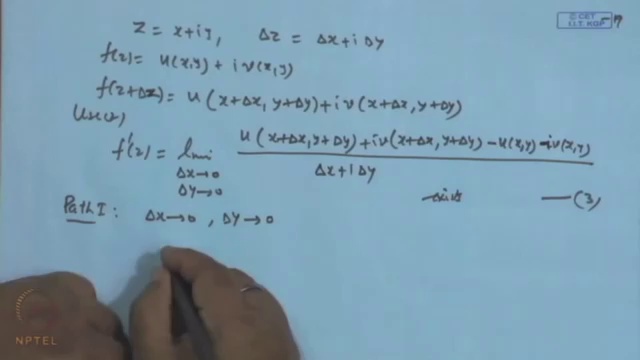 © CET
I.I.T. KGP
Z = x+iy, Δz = Δx+i Δy
f(z) = u(x,y) + i v(x,y)
f(z+Δz) = u(x+Δx, y+Δy) + i v(x+Δx, y+Δy)
f'(z) = lim u(x+Δx, y+Δy) + iv(x+Δx, y+Δy) - u(x,y) - iv(x,y)
Δx→0 Δx+iΔy
Δy→0
—(3)
Path I: Δx→0, Δy→0
NPTEL